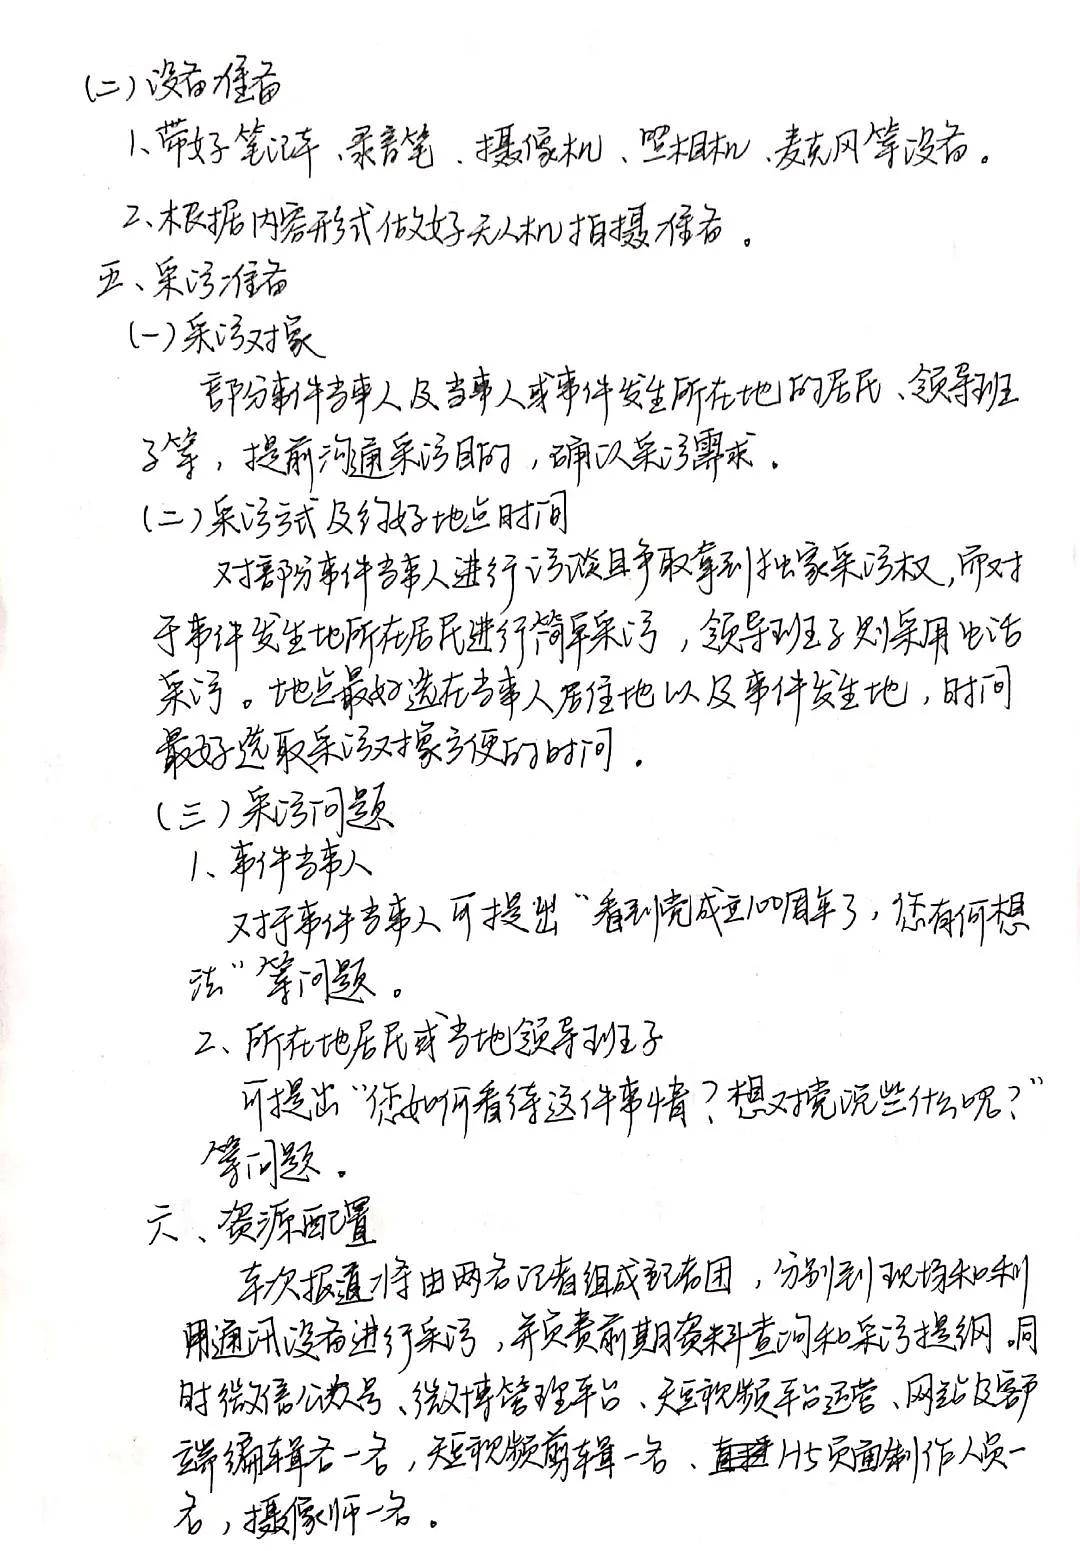 (二)设备准备
1、带好笔记本、录音笔、摄像机、照相机、麦克风等设备。
2、根据内容形式做好无人机拍摄准备。
五、采访准备
(一)采访对象
部分事件当事人及当事人或事件发生所在地的居民、领导班
子等，提前沟通采访目的，确认采访需求。
(二)采访方式及约好地点时间
对部分事件当事人进行访谈且争取拿到独家采访权，而对
于事件发生地所在居民进行简单采访，领导班子则采用电话
采访。地点最好选在当事人居住地以及事件发生地，时间
最好选取采访对象方便的时间。
(三)采访问题
1、事件当事人
对于事件当事人可提出“看到党成立100周年了，您有何想
法”等问题。
2、所在地居民或当地领导班子
可提出“您如何看待这件事情？想对党说些什么呢？”
等问题。
六、资源配置
本次报道将由两名记者组成记者团，分别到现场和利
用通讯设备进行采访，并负责前期资料查询和采访提纲。同
时微信公众号、微博管理平台、短视频平台运营、网站及客户
端编辑各一名，短视频剪辑一名、H5页面制作人员一
名，摄像师一名。